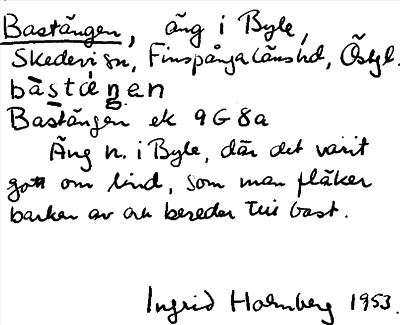 Bastängen, äng i Byle,
Skedevi sn, Finspånga länshd, Östgl.
bàstæ̀ŋen
Bastängen ek 9G8a
Äng n. i Byle, där det varit
gott om lind, som man fläker
barken av och bereder till bast.
Ingrid Holmberg 1953.